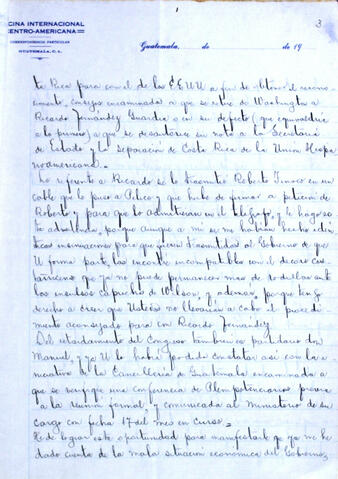 3
OFICINA INTERNACIONAL
CENTRO-AMERICANA
CORRESPONDENCIA PARTICULAR
GUATEMALA, C.A.
Guatemala, de de 19
ta Rica para con el de los EE UU a fin de obtener el reconocimiento,
encaminados a que se retire de Washington a
Ricardo Fernández Guardia o en su defecto (que equivaldría
a lo primero) a que se desautorice su nota a la Secretaría
de Estado y la separación de Costa Rica de la Unión Hispa
noamericana.
Lo referente a Ricardo se lo trasmitió Roberto Tinoco en un
cable que le puso a Pelico y que hube de firmar a petición de
Roberto y para que lo admitieran en el telégrafo, y le hago es-
ta advertencia, porque aunque a mí se me habían hecho idén
ticas insinuaciones para que fueran trasmitidas al Gobierno de que
U forma parte, las encontré incompatibles con el decoro cos
tarricense que ya no puede permanecer más de rodillas ante
los insultos capricho de Wilson, y además, porque tengo
derecho a creer que Ustedes no llevarían a cabo el procedi-
miento aconsejado para con Ricardo Fernández.
Del retardamiento del Congreso también es partidario don
Manuel, y ya U lo habrá podido constatar así con la
iniciativa de la Cancillería de Guatemala encaminada a
que se verifique una Conferencia de Plenipotenciarios previa
a la reunión formal, y comunicada al Ministerio de su
cargo con fecha 17 del mes en curso.
He de lograr esta oportunidad para manifestarle que ya me he
dado cuenta de la mala situación económica del Gobierno,